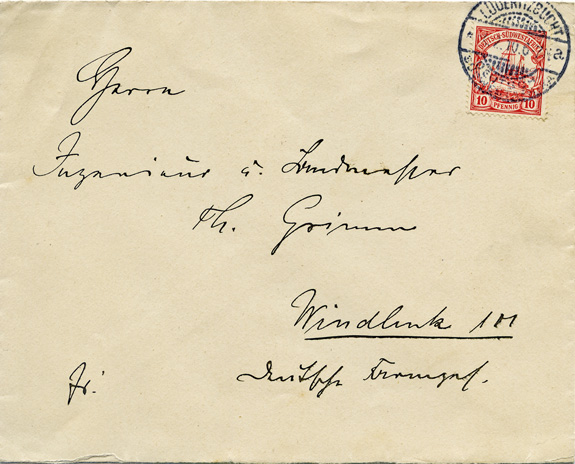 LÜDERITZBUCHT
DEUTSCH-SÜDWESTAFRIKA
10 PFENNIG 10
Herrn
Ingenieur u. Landmesser
Th. Grimm
Windhuk
Deutsche
fr.